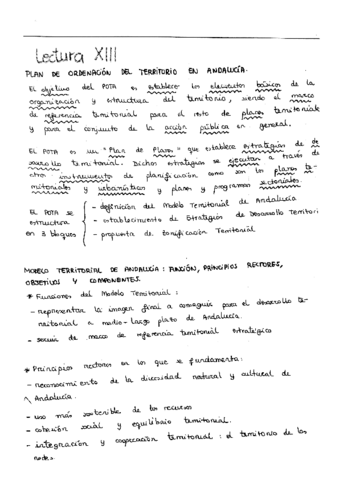 Lectura XIII
PLAN DE ORDENACIÓN DEL TERRITORIO EN ANDALUCÍA.
EL objetivo del POTA es establecer los elementos básicos de la
organización y estructura del territorio, siendo el marco
de referencia territorial para el resto de planes territoriales
y para el conjunto de la acción pública en general.
EL POTA es un "Plan de Planes" que establece estrategias de de
sarrollo territorial. Dichas estrategias se ejecutan a través de
otros instrumentos de planificación como son los planes te-
rritoriales y urbanísticos y planes y programas sectoriales.
EL POTA se estructura en 3 bloques
- definición del Modelo Territorial de Andalucía
- establecimiento de Estrategias de Desarrollo Territori
- propuesta de zonificación Territorial
MODELO TERRITORIAL DE ANDALUCÍA: FUNCIÓN, PRINCIPIOS RECTORES,
OBJETIVOS Y COMPONENTES.
* Funciones del Modelo Territorial:
- representar la imagen final a conseguir para el desarrollo te-
rritorial a medio-largo plazo de Andalucía.
- servir de marco de referencia territorial estratégico
* Principios rectores en los que se fundamenta:
- reconocimiento de la diversidad natural y cultural de
Andalucía.
- uso más sostenible de los recursos
- cohesión social y equilibrio territorial.
- integración y cooperación territorial: el territorio de las
redes.